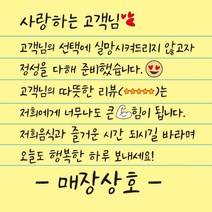 사랑하는 고객님💕
고객님의 선택에 실망시켜드리지 않고자
정성을 다해 준비했습니다.😍
고객님의 따뜻한 리뷰(★★★★★)는
저희에게 너무나도 큰💪힘이 됩니다.
저희음식과 즐거운 시간 되시길 바라며
오늘도 행복한 하루 보내세요!
- 매장상호 -